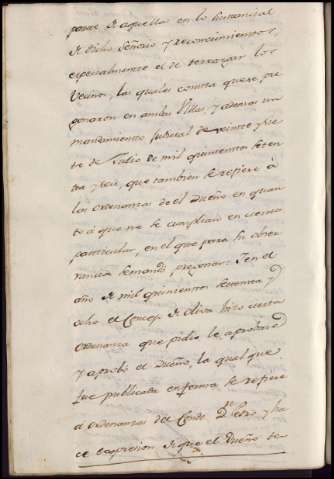 parte de aquellas en lo sustancial
de dicho Señorio y reconocimientos,
especialmente el de terrazgar los
Vecinos, las quales consta que se pre
gonaron en ambas Villas, y ademas un
mandamiento judicial de veinte y sie
te de Julio de mil quinientos seten
ta y seis, que tambien se refiere à
las ordenanzas de el Dueño en quan
to à que no se cumplian en cierto
particular, en el que para su obser
vancia se mandò pregonar: Y en el
año de mil quinientos setenta y
ocho el Concejo de Oliva hizo cierta
ordenanza que pidio le aprobase
y aprobò el Dueño, la qual que
fue publicada en forma, se refiere
à ordenanzas del Conde Dn. y ha
ce expresion de que el Dueño te